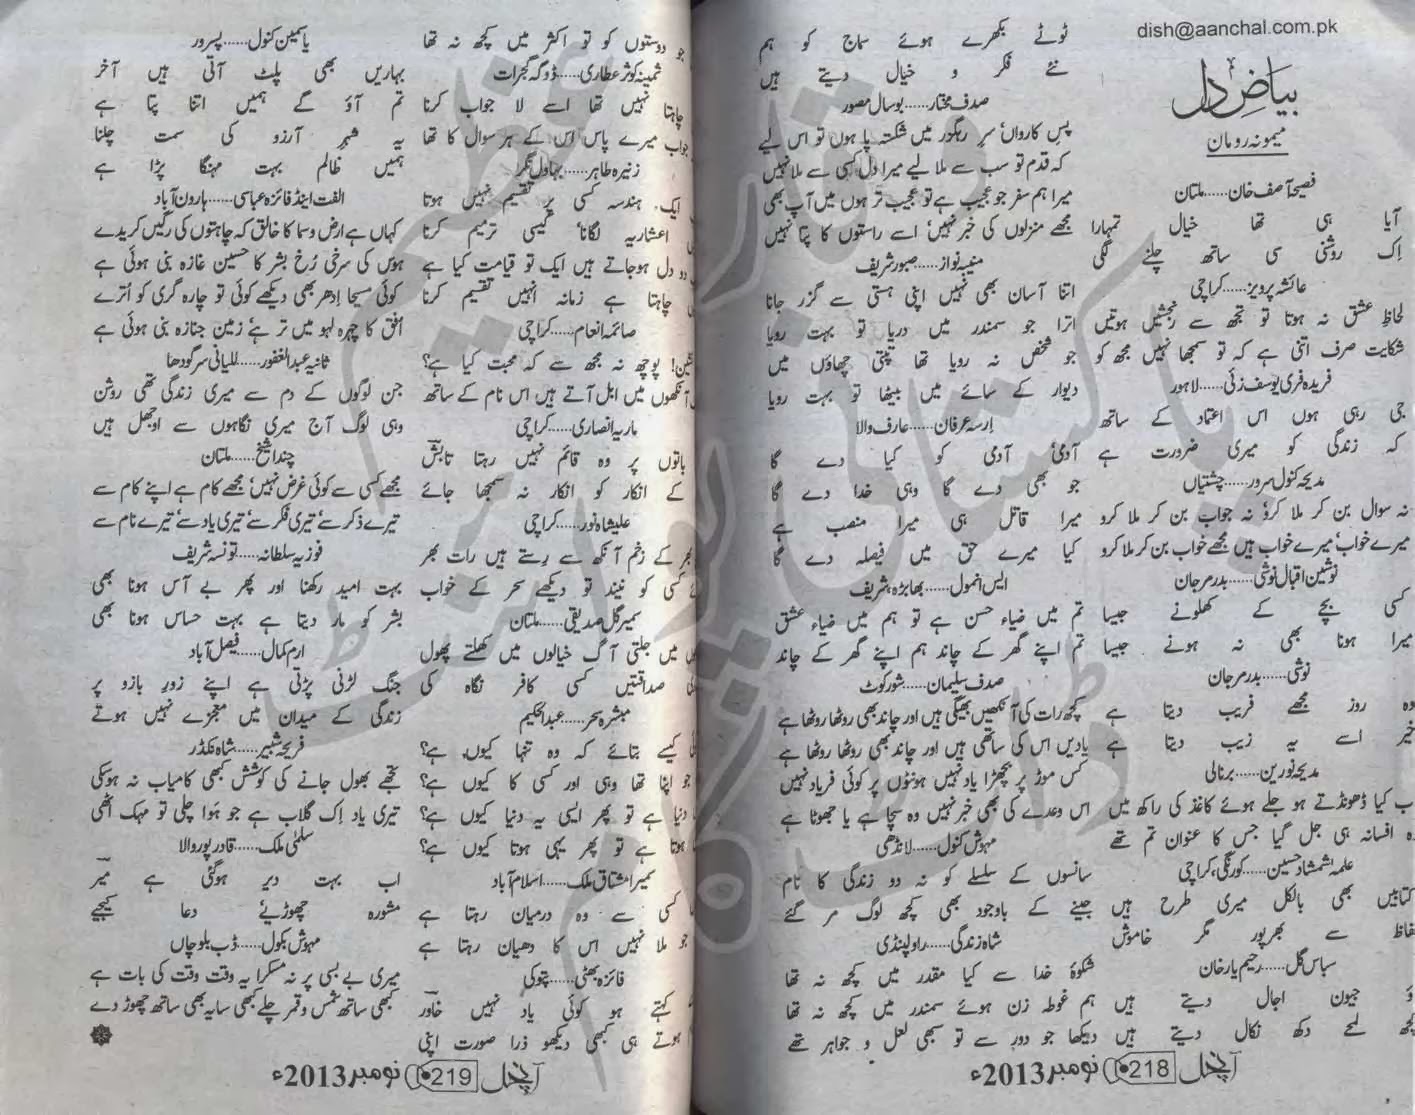 dish@aanchal.com.pk
بیاضِ دل
میمونہ رومان
فصیحہ آصف خان...... ملتان
آیا ہی تھا خیال تمہارا
اِک روشنی سی ساتھ چلنے لگی
عائشہ پرویز...... کراچی
لحاظِ عشق نہ ہوتا تو تجھ سے رنجشیں ہوتیں
شکایت صرف اتنی ہے کہ تو سمجھا نہیں مجھ کو
فریدہ فری یوسف زئی...... لاہور
جی رہی ہوں اس اعتماد کے ساتھ
کہ زندگی کو میری ضرورت ہے
مدیحہ کنول سرور...... چشتیاں
نہ سوال بن کر ملا کرو نہ جواب بن کر ملا کرو
میرے خواب میرے خواب ہیں مجھے خواب بن کر ملا کرو
نوشین اقبال نوشی...... بدر مرجان
کسی بچے کے کھلونے جیسا
میرا ہونا بھی نہ ہونے جیسا
نوشی...... بدر مرجان
وہ روز مجھے فریب دیتا ہے
خیر اسے یہ زیب دیتا ہے
مدیحہ نورین...... برنالی
اب کیا ڈھونڈتے ہو جلے ہوئے کاغذ کی راکھ میں
وہ افسانہ ہی جل گیا جس کا عنوان تم تھے
علمہ شمشاد حسین...... کورنگی، کراچی
کتابیں بھی بالکل میری طرح ہیں
الفاظ سے بھرپور مگر خاموش
سباس گل...... رحیم یار خان
جیون اجال دیتے ہیں
لمحے دکھ نکال دیتے ہیں
ٹوٹے بکھرے ہوئے سماج کو ہم
نئے فکر و خیال دیتے ہیں
صدف مختار...... بوسال مصور
پسِ کارواں سرِ رہگزر میں شکستہ پا ہوں تو اس لیے
کہ قدم تو سب سے ملا لیے میرا دل کسی سے ملا نہیں
میرا ہم سفر جو عجیب ہے تو عجیب تر ہوں میں آپ بھی
مجھے منزلوں کی خبر نہیں اسے راستوں کا پتا نہیں
منیبہ نواز...... صبور شریف
اتنا آسان بھی نہیں اپنی ہستی سے گزر جانا
اترا جو سمندر میں دریا تو بہت رویا
جو شخص نہ رویا تھا تپتی چھاؤں میں
دیوار کے سائے میں بیٹھا تو بہت رویا
ارسہ عرفان...... عارف والا
آدمی آدمی کو کیا دے گا
جو بھی دے گا وہی خدا دے گا
میرا قاتل ہی میرا منصب ہے
کیا میرے حق میں فیصلہ دے گا
ایس انمول...... بھابڑہ شریف
تم میں ضیاء حسن ہے تو ہم میں ضیاء عشق
تم اپنے گھر کے چاند ہم اپنے گھر کے چاند
صدف سلیمان...... شور کوٹ
کچھ رات کی آنکھیں بھیگی ہیں اور چاند بھی روٹھا روٹھا ہے
یادیں اس کی ساتھی ہیں اور چاند بھی روٹھا روٹھا ہے
کس موڑ پر بچھڑا یاد نہیں ہونٹوں پر کوئی فریاد نہیں
اس وعدے کی بھی خبر نہیں وہ سچا ہے یا جھوٹا ہے
مہوش کنول...... لانڈھی
سانسوں کے سلسلے کو نہ دو زندگی کا نام
جینے کے باوجود بھی کچھ لوگ مر گئے
شاہ زندگی...... راولپنڈی
شکوۂ خدا سے کیا مقدر میں کچھ نہ تھا
ہم غوطہ زن ہوئے سمندر میں کچھ نہ تھا
دیکھا جو دور سے تو سبھی لعل و جواہر تھے
آنچل 218 نومبر 2013ء
جو دوستوں کو تو اکثر میں کچھ نہ تھا
ثمینہ کوثر عطاری...... ڈوگہ گجرات
چاہتا نہیں تھا اسے لا جواب کرنا
جواب میرے پاس اس کے ہر سوال کا تھا
زنیرہ طاہر...... بہاول نگر
ایک ہندسہ کسی پر تقسیم نہیں ہوتا
اعشاریہ لگانا کیسی ترمیم کرنا
دو دل ہوجاتے ہیں ایک تو قیامت کیا ہے
چاہتا ہے زمانہ انہیں تقسیم کرنا
صائمہ انعام...... کراچی
پوچھ نہ مجھ سے کہ محبت کیا ہے؟
آنکھوں میں ابل آتے ہیں اس نام کے ساتھ
ماریہ انصاری...... کراچی
باتوں پر وہ قائم نہیں رہتا تابش
کے انکار کو انکار نہ سمجھا جائے
علیشاہ نور...... کراچی
کے زخم آنکھ سے رستے ہیں رات بھر
کسی کو نیند تو دیکھے سحر کے خواب
سمیر گل صدیقی...... ملتان
میں جلتی آگ خیالوں میں کھلتے پھول
صداقتیں کسی کافر نگاہ کی
مبشرہ سحر...... عبدالحکیم
کیسے بتائے کہ وہ تنہا کیوں ہے؟
جو اپنا تھا وہی اور کسی کا کیوں ہے؟
دنیا ہے تو پھر ایسی یہ دنیا کیوں ہے؟
ہوتا ہے تو پھر یہی ہوتا کیوں ہے؟
سمیرا مشتاق ملک...... اسلام آباد
کسی سے وہ درمیان رہتا ہے
جو ملا نہیں اس کا دھیان رہتا ہے
فائزہ بھٹی...... پتوکی
کہتے ہو کوئی یاد نہیں خاور
ہوتے ہی کبھی دیکھو ذرا صورت اپنی
یاسمین کنول...... پسرور
بہاریں بھی پلٹ آتی ہیں آخر
تم آؤ گے ہمیں اتنا پتا ہے
یہ شہرِ آرزو کی سمت چلنا
ہمیں ظالم بہت مہنگا پڑا ہے
الفت اینڈ فائزہ عباسی...... ہارون آباد
کہاں ہے ارض و سما کا خالق کہ چاہتوں کی رگیں کریدے
ہوس کی سرخی رُخِ بشر کا حسین غازہ بنی ہوئی ہے
کوئی مسیحا اِدھر بھی دیکھے کوئی تو چارہ گری کو اُترے
اُفق کا چہرہ لہو میں تر ہے زمین جنازہ بنی ہوئی ہے
ثانیہ عبدالغفور...... للیانی سرگودھا
جن لوگوں کے دم سے میری زندگی تھی روشن
وہی لوگ آج میری نگاہوں سے اوجھل ہیں
چندا شیخ...... ملتان
مجھے کسی سے کوئی غرض نہیں مجھے کام ہے اپنے کام سے
تیرے ذکر سے تیری فکر سے تیری یاد سے تیرے نام سے
فوزیہ سلطانہ...... تونسہ شریف
بہت امید رکھنا اور پھر بے آس ہونا بھی
بشر کو مار دیتا ہے بہت حساس ہونا بھی
ارم کمال...... فیصل آباد
جنگ لڑنی پڑتی ہے اپنے زورِ بازو پر
زندگی کے میدان میں معجزے نہیں ہوتے
فریحہ شبیر...... شاہ نکڈر
تجھے بھول جانے کی کوشش کبھی کامیاب نہ ہوسکی
تیری یاد اِک گلاب ہے جو ہَوا چلی تو مہک اٹھی
سلمٰی ملک...... قادر پور والا
اب بہت دیر ہوگئی ہے میر
مشورہ چھوڑیے دعا کیجیے
مہوش بکول...... ڈب بلوچاں
میری بے بسی پر نہ مسکرا یہ وقت وقت کی بات ہے
کبھی ساتھ شمس و قمر چلے کبھی سایہ بھی ساتھ چھوڑ دے
آنچل 219 نومبر 2013ء